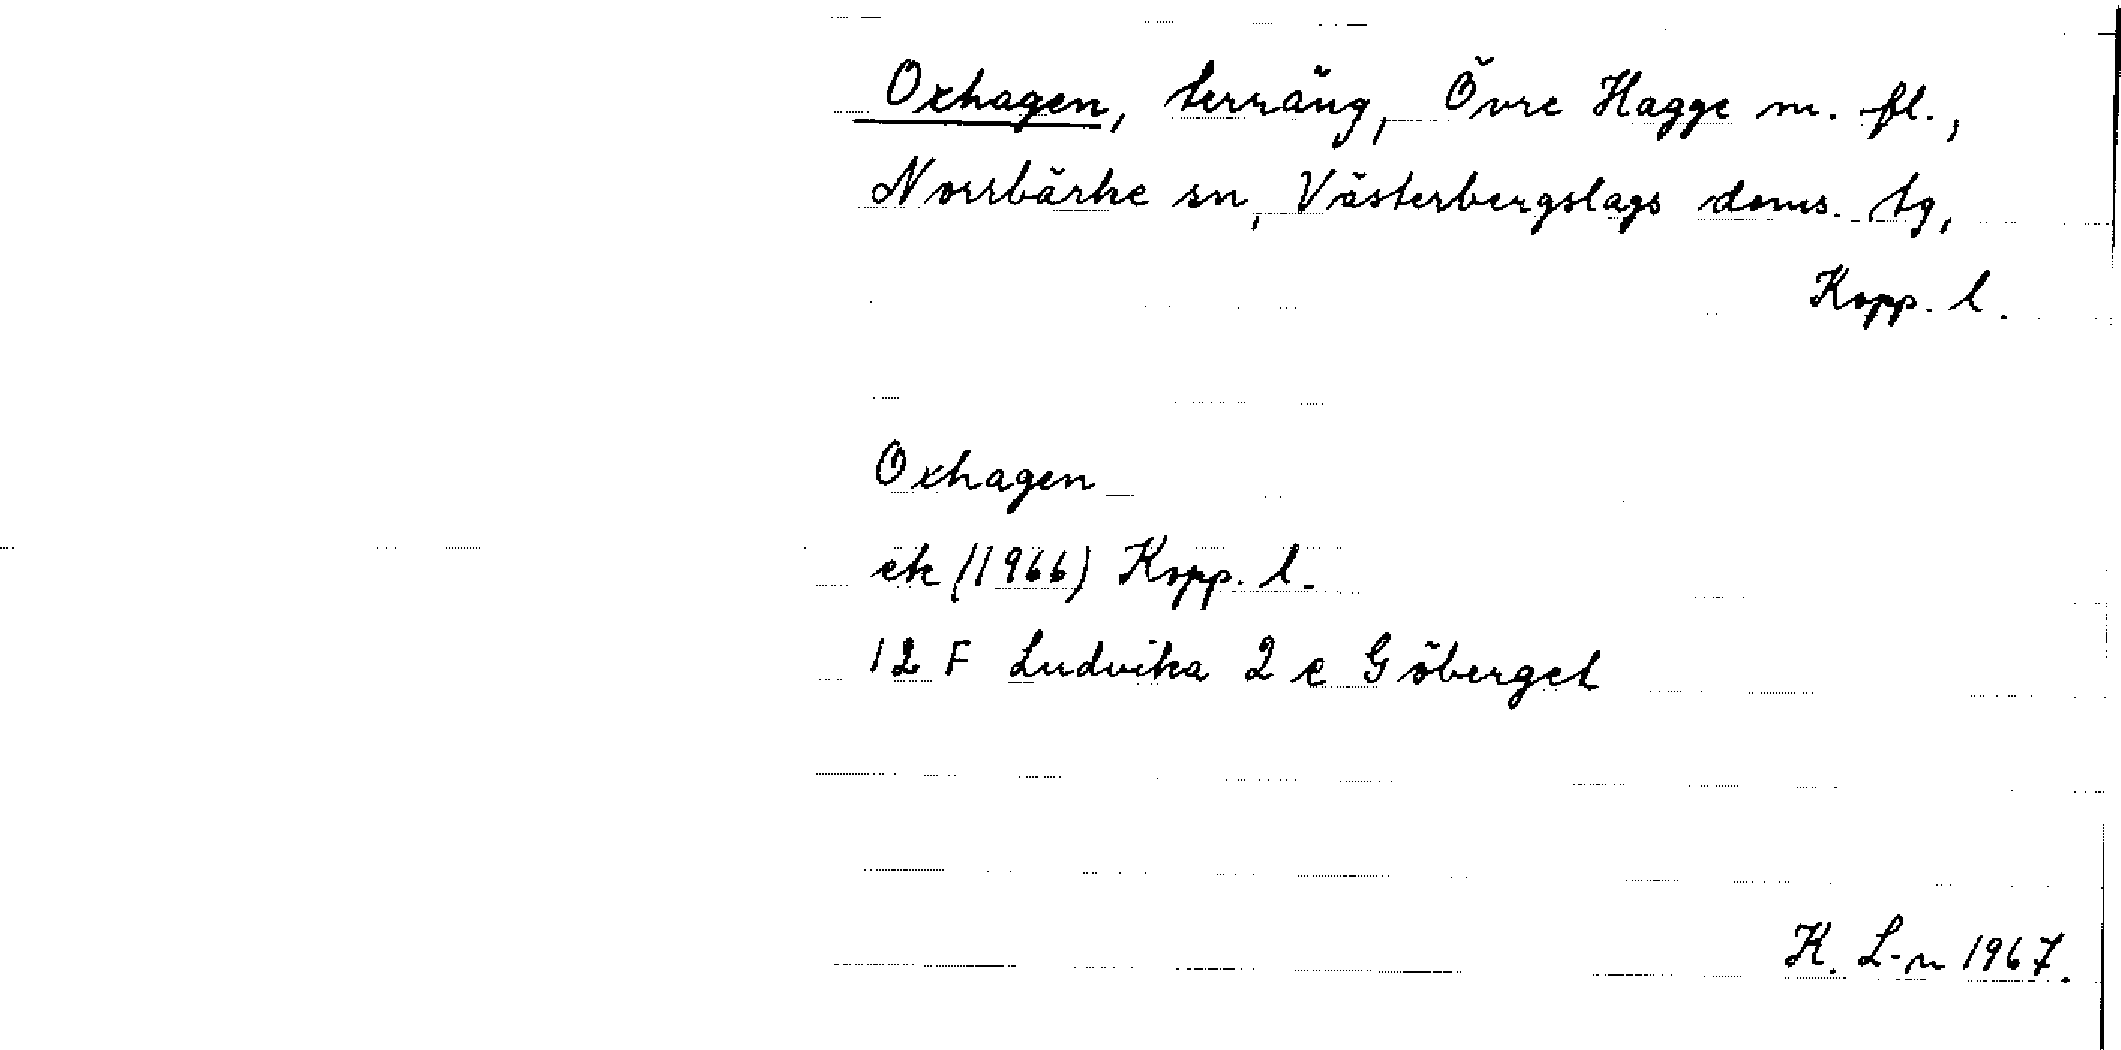 Oxhagen, terräng, Övre Hagge m. fl.,
Norrbärke sn, Västerbergslags doms. tg,
Kopp. l.
Oxhagen
ek (1966) Kopp. l.
12 F Ludvika 2 e Göberget
H. L-n 1967.